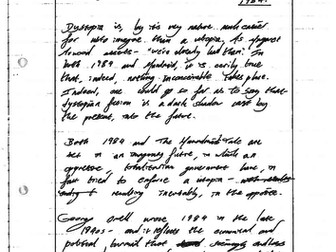 1984.
Dystopia is, by its very nature, much easier
for us to imagine than a utopia. As August
Around asserts - "we're already but then". In
both 1984 and Handmaid, it is eerily true
that, indeed, nothing inconceivable takes place.
Indeed, one could go so far as to say that
dystopian fiction is a dark shadow cast by
the present, into the future.
Both 1984 and The Handmaid's Tale are
set in an imaginary future, in which an
oppressive, totalitarian government have, in
fact tried to enforce a utopia -
resulting inevitably, in the opposite.
George Orwell wrote 1984 in the late
1940s - and it reflects the economical and
political, turmoil that seemingly endless